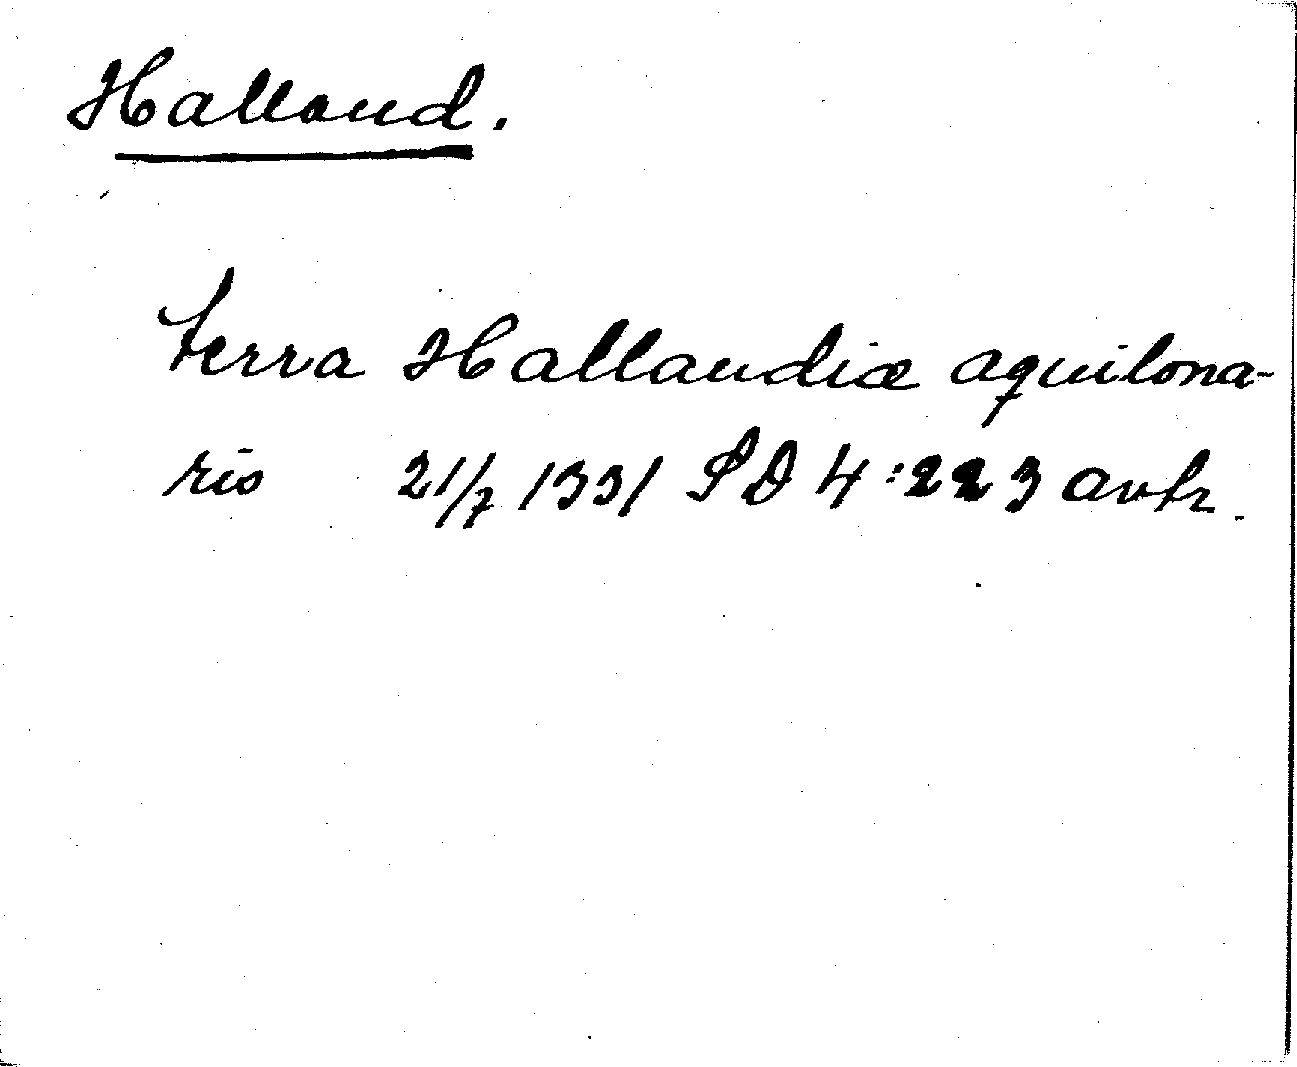 Halland.
terra Hallandiæ aquilona-
ris 21/7 1331 SD 4:223 avskr.